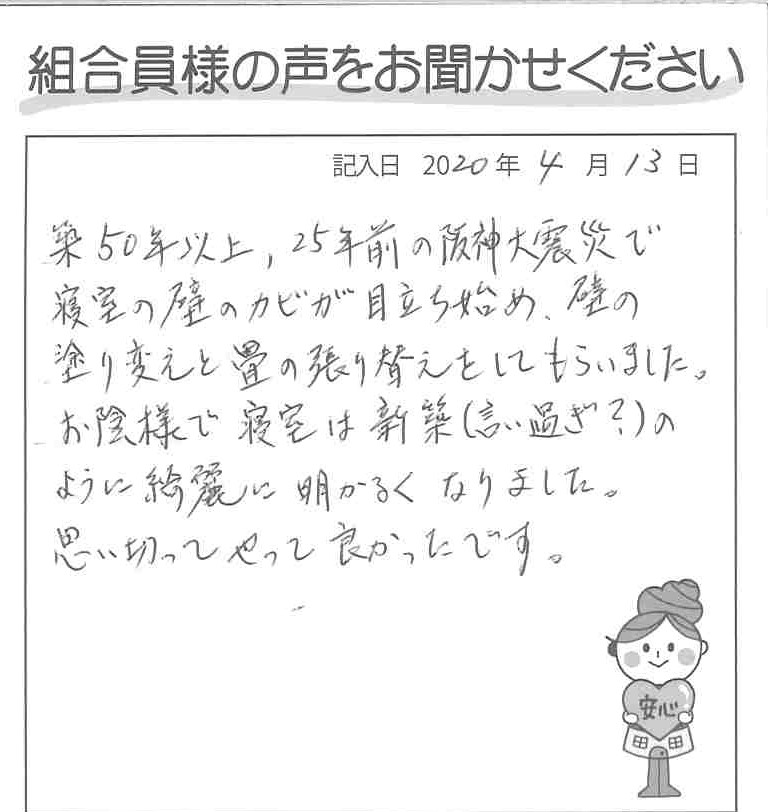 組合員様の声をお聞かせください
記入日 2020年 4月 13日
築50年以上,25年前の阪神大震災で
寝室の壁のカビが目立ち始め、壁の
塗り変えと畳の張り替えをしてもらいました。
お陰様で寝室は新築(言い過ぎ?)の
ように綺麗に明かるくなりました。
思い切ってやって良かったです。
安心